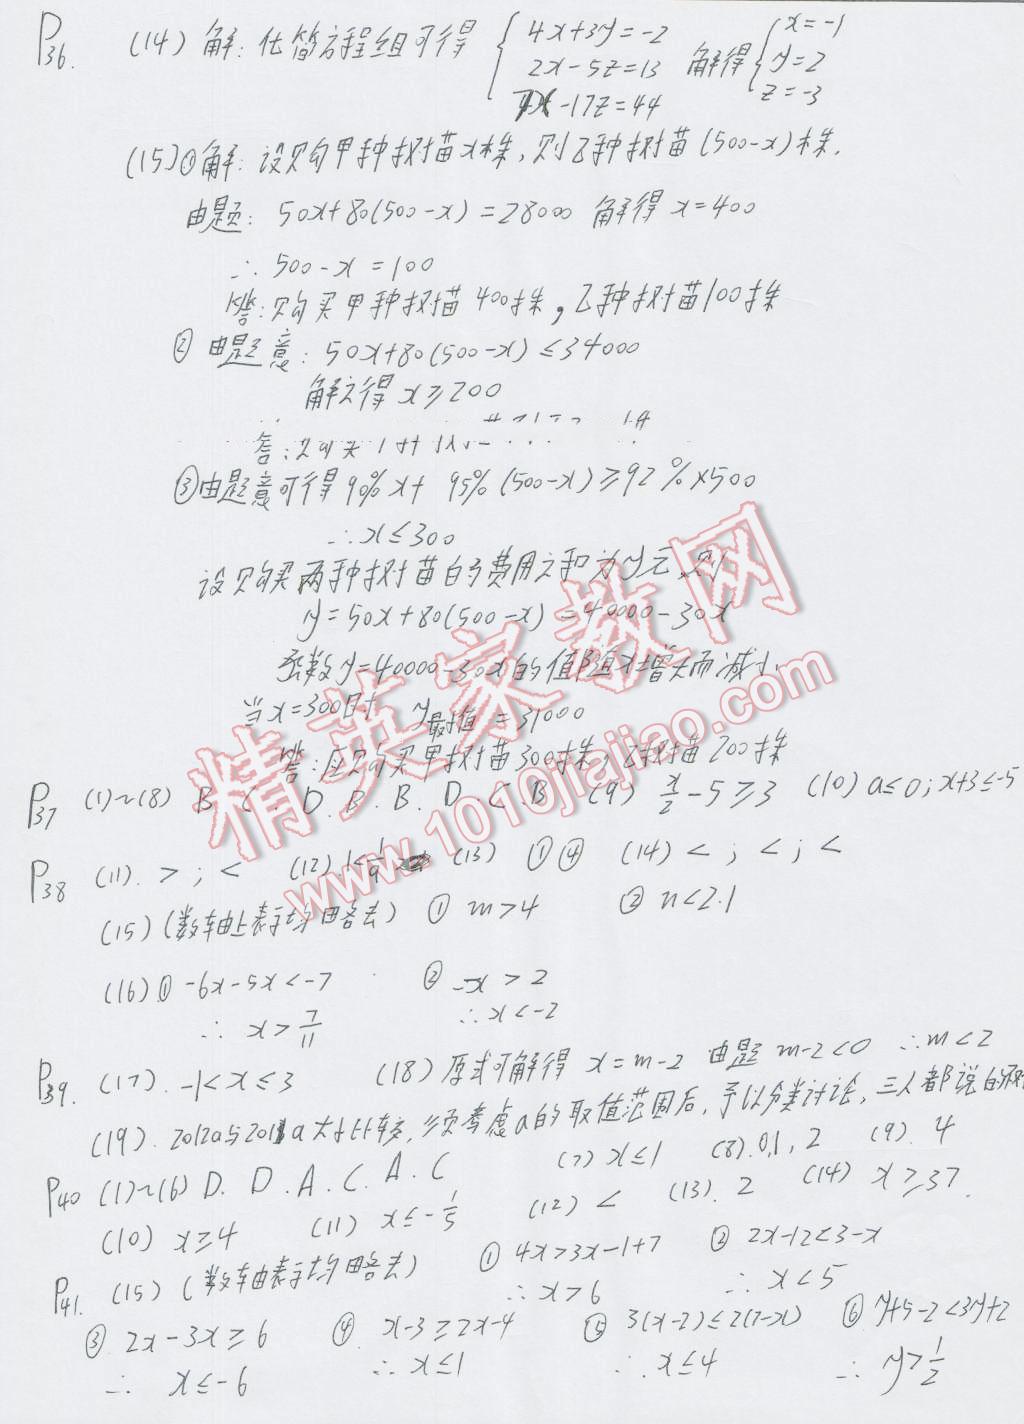 P36. (14) 解: 化简方程组可得 { 4x+3y=-2 解得 { x=-1
2x-5z=13 y=2
-17z=44 z=-3
(15)① 解: 设购甲种树苗x株, 则乙种树苗(500-x)株.
由题: 50x+80(500-x)=28000 解得 x=400
∴ 500-x=100
答: 购买甲种树苗400株, 乙种树苗100株
② 由题意: 50x+80(500-x)≤34000
解之得 x≥200
答:
③由题意可得 90%x+ 95%(500-x)≥92%×500
∴x≤300
设购买两种树苗的费用之和为y元, 则
y=50x+80(500-x)=40000-30x
y=40000-30x的值随x增大而减小
当x=300时 y最小值=31000
答: 应购买甲树苗300株, 乙树苗200株
P37 (1)~(8) B C. D. B. B. D. C. B (9) x/2-5≥3 (10) a≤0; x+3≤-5
P38 (11). > ; < (12) (13) ①④ (14) < ; < ; <
(15) (数轴上表示均略去) ① m>4 ② n<2.1
(16)① -6x-5x<-7 ② -x>2
∴ x>7/11 ∴ x<-2
P39. (17). -1<x≤3 (18) 原式可解得 x=m-2 由题 m-2<0 ∴m<2
(19). 2012a与2011a大小比较, 须考虑a的取值范围后, 予以分类讨论, 三人都说的
P40 (1)~(6) D. D. A. C. A. C (7) x≤1 (8).0,1,2 (9). 4
(10) x≥4 (11) x≤-1/5 (12) < (13). 2 (14) x≥37.
P41. (15) (数轴表示均略去) ① 4x>3x-1+7 ② 2x-12<3-x
∴ x>6 ∴ x<5
③ 2x-3x≥6 ④ x-3≥2x-4 ⑤ 3(x-2)≤2(7-x) ⑥ y+5-2<3y+2
∴ x≤-6 ∴ x≤1 ∴ x≤4 ∴ y>1/2
精英家教网
www.1010jiajiao.com